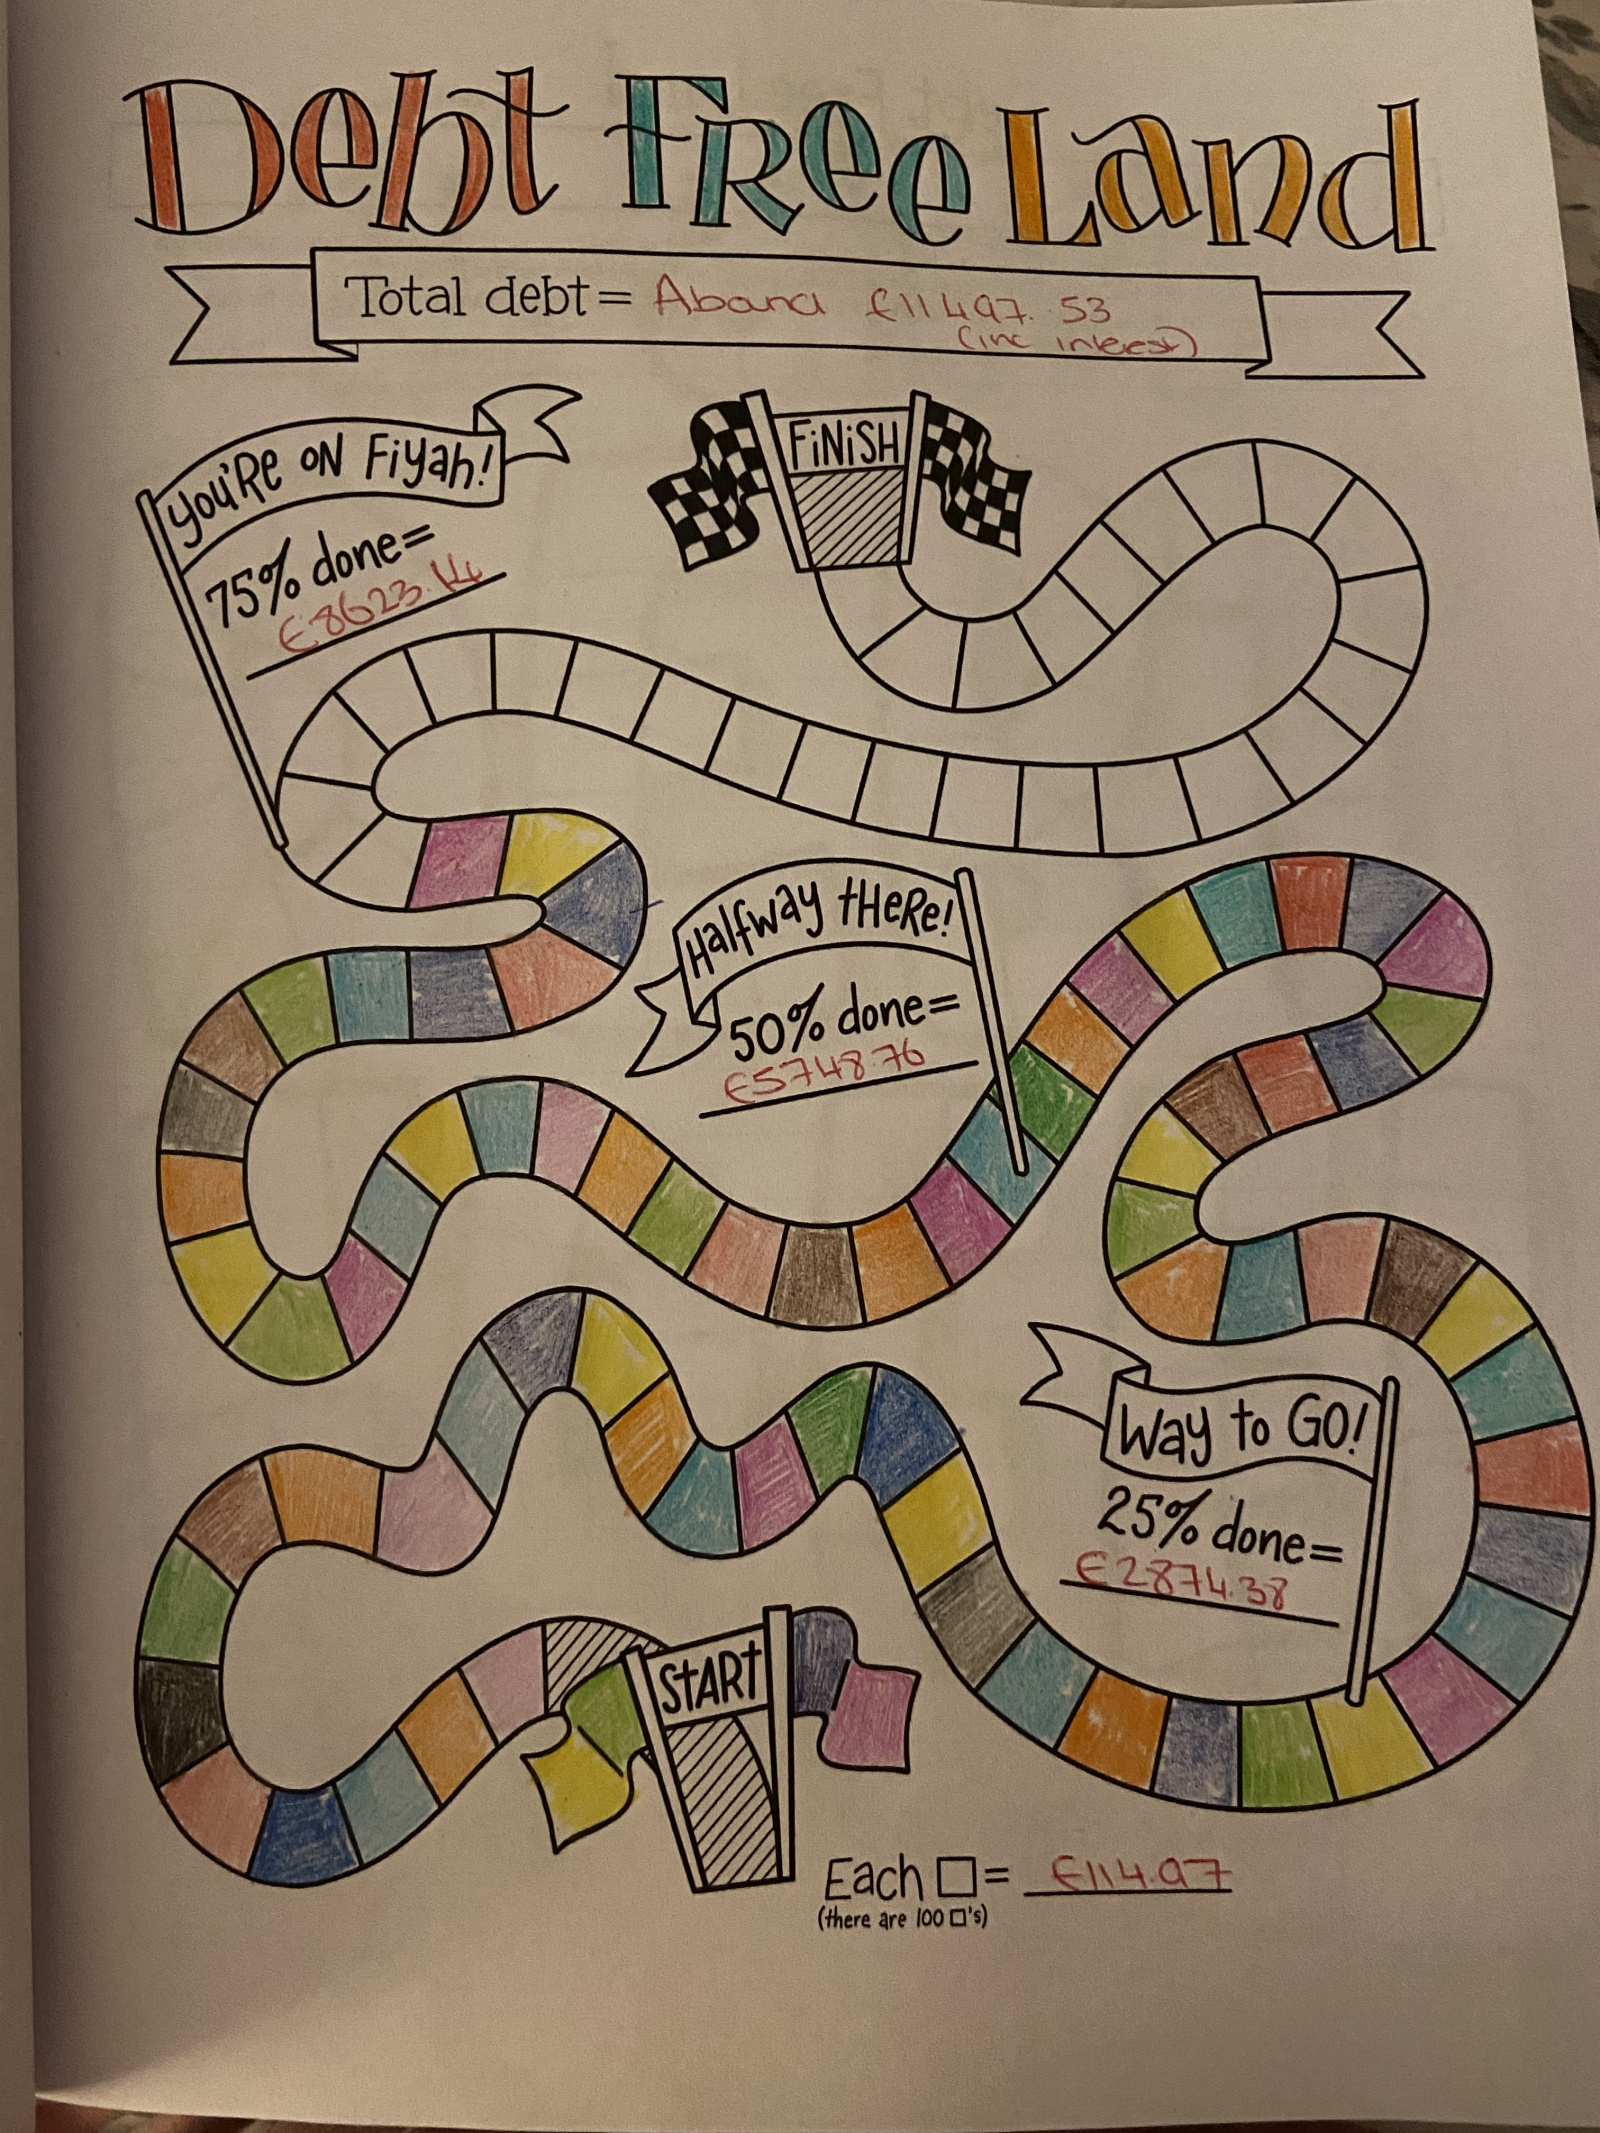 Debt Free Land
Total debt = Abanca €11497.53
(inc interest)
FiNiSH
You're on Fiyah!
75% done=
€8623.14
Halfway there!
50% done=
€5748.76
Way to Go!
25% done=
€2874.38
Start
Each □ = €114.97
(there are 100 □'s)